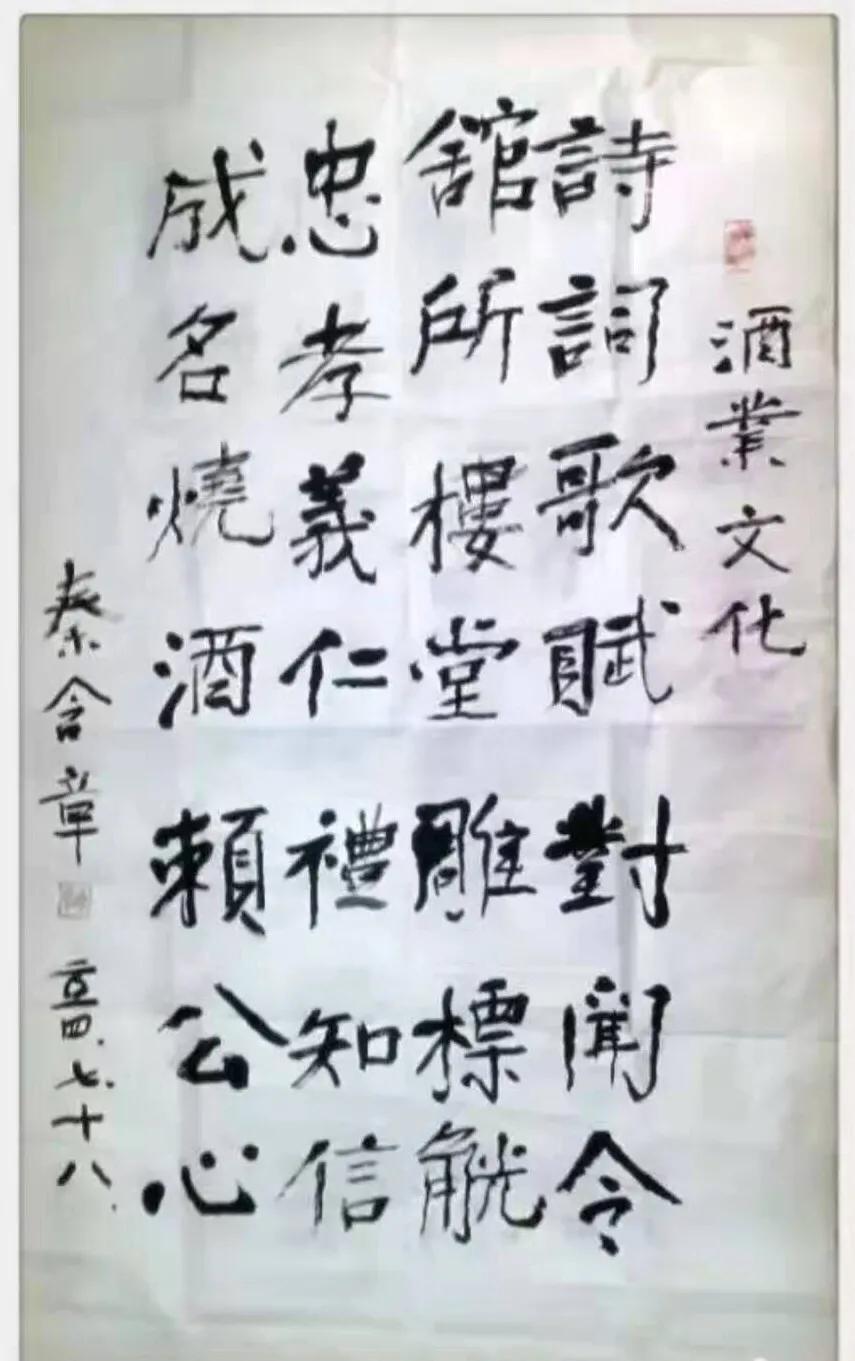 酒業文化
詩詞歌賦對聞令
舘所樓堂雕標觥
忠孝義仁禮知信
成名燒酒賴公心
秦含章
四.七.十八.